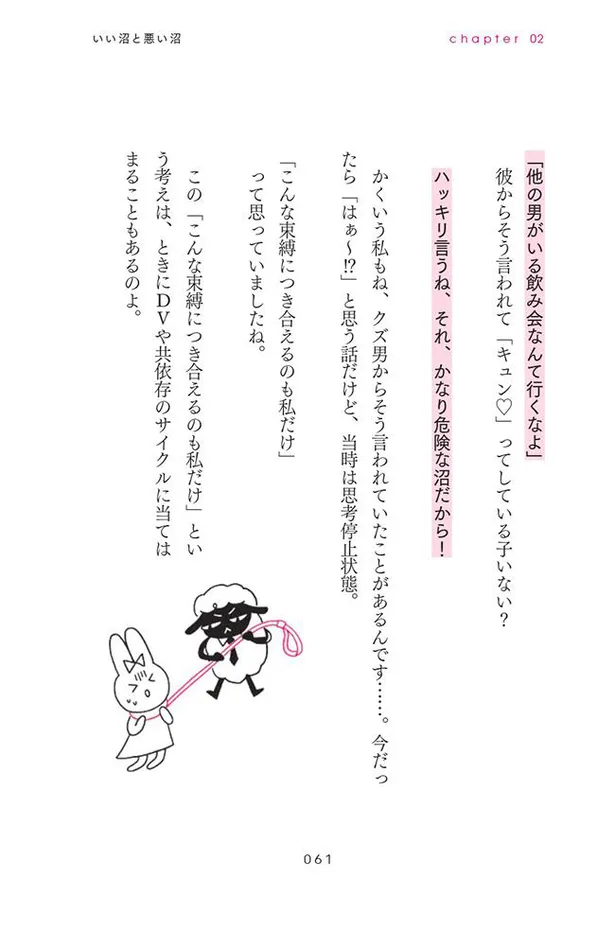 いい沼と悪い沼
chapter 02
「他の男がいる飲み会なんて行くなよ」
彼からそう言われて「キュン♡」ってしている子いない？
ハッキリ言うね、それ、かなり危険な沼だから！
かくいう私もね、クズ男からそう言われていたことがあるんです……。今だっ
たら「はぁ～⁉」と思う話だけど、当時は思考停止状態。
「こんな束縛につき合えるのも私だけ」
って思っていましたね。
この「こんな束縛につき合えるのも私だけ」とい
う考えは、ときにＤＶや共依存のサイクルに当ては
まることもあるのよ。
061